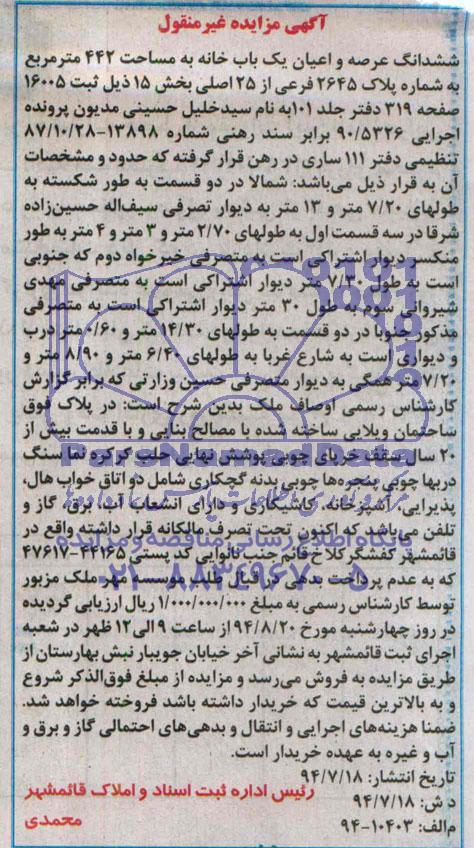 آگهی مزایده غیرمنقول
ششدانگ عرصه و اعیان یک باب خانه به مساحت ۴۴۲ مترمربع
به شماره پلاک ۲۶۴۵ فرعی از ۲۵ اصلی بخش ۱۵ ذیل ثبت ۱۶۰۰۵
صفحه ۳۱۹ دفتر جلد ۱۰۱به نام سیدخلیل حسینی مدیون پرونده
اجرایی ۹۰/۵۳۲۶ برابر سند رهنی شماره ۱۳۸۹۸-۸۷/۱۰/۲۸
تنظیمی دفتر ۱۱۱ ساری در رهن قرار گرفته که حدود و مشخصات
آن به قرار ذیل می‌باشد: شمالا در دو قسمت به طور شکسته به
طولهای ۷/۲۰ متر و ۱۳ متر به دیوار تصرفی سیف‌اله حسین‌زاده
شرقا در سه قسمت اول به طولهای ۲/۷۰ متر و ۳ متر و ۴ متر به طور
منکسر دیوار اشتراکی است به متصرفی خیرخواه دوم که جنوبی
است به طول ۷/۳۰ متر دیوار اشتراکی است به متصرفی مهدی
شیروانی سوم به طول ۳۰ متر دیوار اشتراکی است به متصرفی
مذکور جنوبا در دو قسمت به طولهای ۱۴/۳۰ متر و ۰/۶۰ متر درب
و دیواری است به شارع غربا به طولهای ۶/۴۰ متر و ۸/۹۰ متر و
۷/۲۰ متر همگی به دیوار متصرفی حسین وزارتی که برابر گزارش
کارشناس رسمی اوصاف ملک بدین شرح است: در پلاک فوق
ساختمان ویلایی ساخته شده با مصالح بنایی و با قدمت بیش از
۲۰ سال سقف خرپای چوبی پوشش نهایی حلب کرکره نما سنگ
دربها چوبی پنجره‌ها چوبی بدنه گچکاری شامل دو اتاق خواب هال،
پذیرایی، آشپزخانه، کاشیکاری و دارای انشعاب آب، برق، گاز و
تلفن می‌باشد که اکنون تحت تصرف مالکانه قرار داشته واقع در
قائمشهر کفشگرکلا خ قائم جنب نانوایی کد پستی ۴۴۱۶۵-۴۷۶۱۷
که به عدم پرداخت بدهی در قبال طلب موسسه مهر ملک مزبور
توسط کارشناس رسمی به مبلغ ۱/۰۰۰/۰۰۰/۰۰۰ ریال ارزیابی گردیده
در روز چهارشنبه مورخ ۹۴/۸/۲۰ از ساعت ۹ الی۱۲ ظهر در شعبه
اجرای ثبت قائمشهر به نشانی آخر خیابان جویبار نبش بهارستان از
طریق مزایده به فروش می‌رسد و مزایده از مبلغ فوق‌الذکر شروع و
و به بالاترین قیمت که خریدار داشته باشد فروخته خواهد شد.
ضمنا هزینه‌های اجرایی و انتقال و بدهی‌های احتمالی گاز و برق و
آب و غیره به عهده خریدار است.
تاریخ انتشار: ۹۴/۷/۱۸
رئیس اداره ثبت اسناد و املاک قائمشهر
د ش: ۹۴/۷/۱۸
محمدی
م‌الف: ۱۰۴۰۳-۹۴
ParsNamadData
پایگاه اطلاع رسانی مناقصه و مزایده
۰۲۱-۸۸۳۴۹۶۷۰-۵